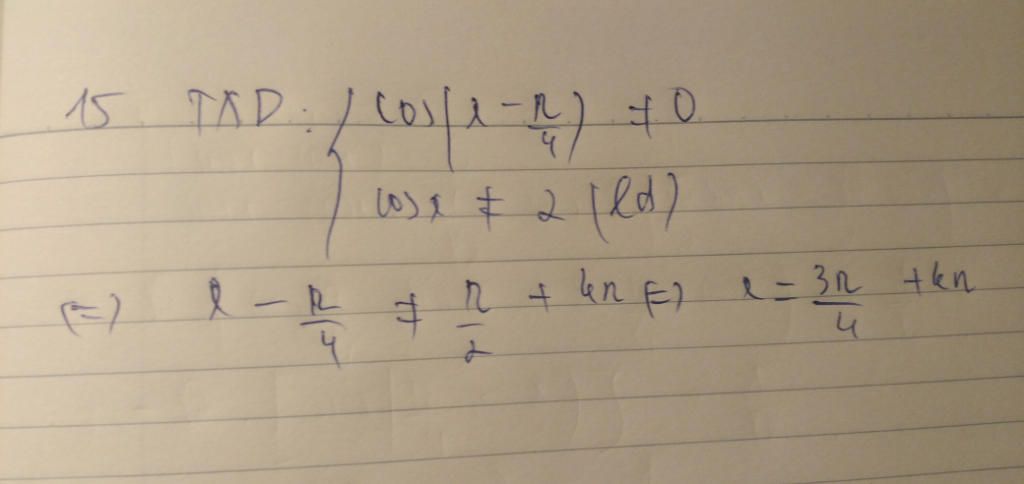 15 TXĐ: { cos(x - π/4) ≠ 0
cos x ≠ 2 (lđ)
(=) x - π/4 ≠ π/2 + kπ (=) x = 3π/4 + kπ